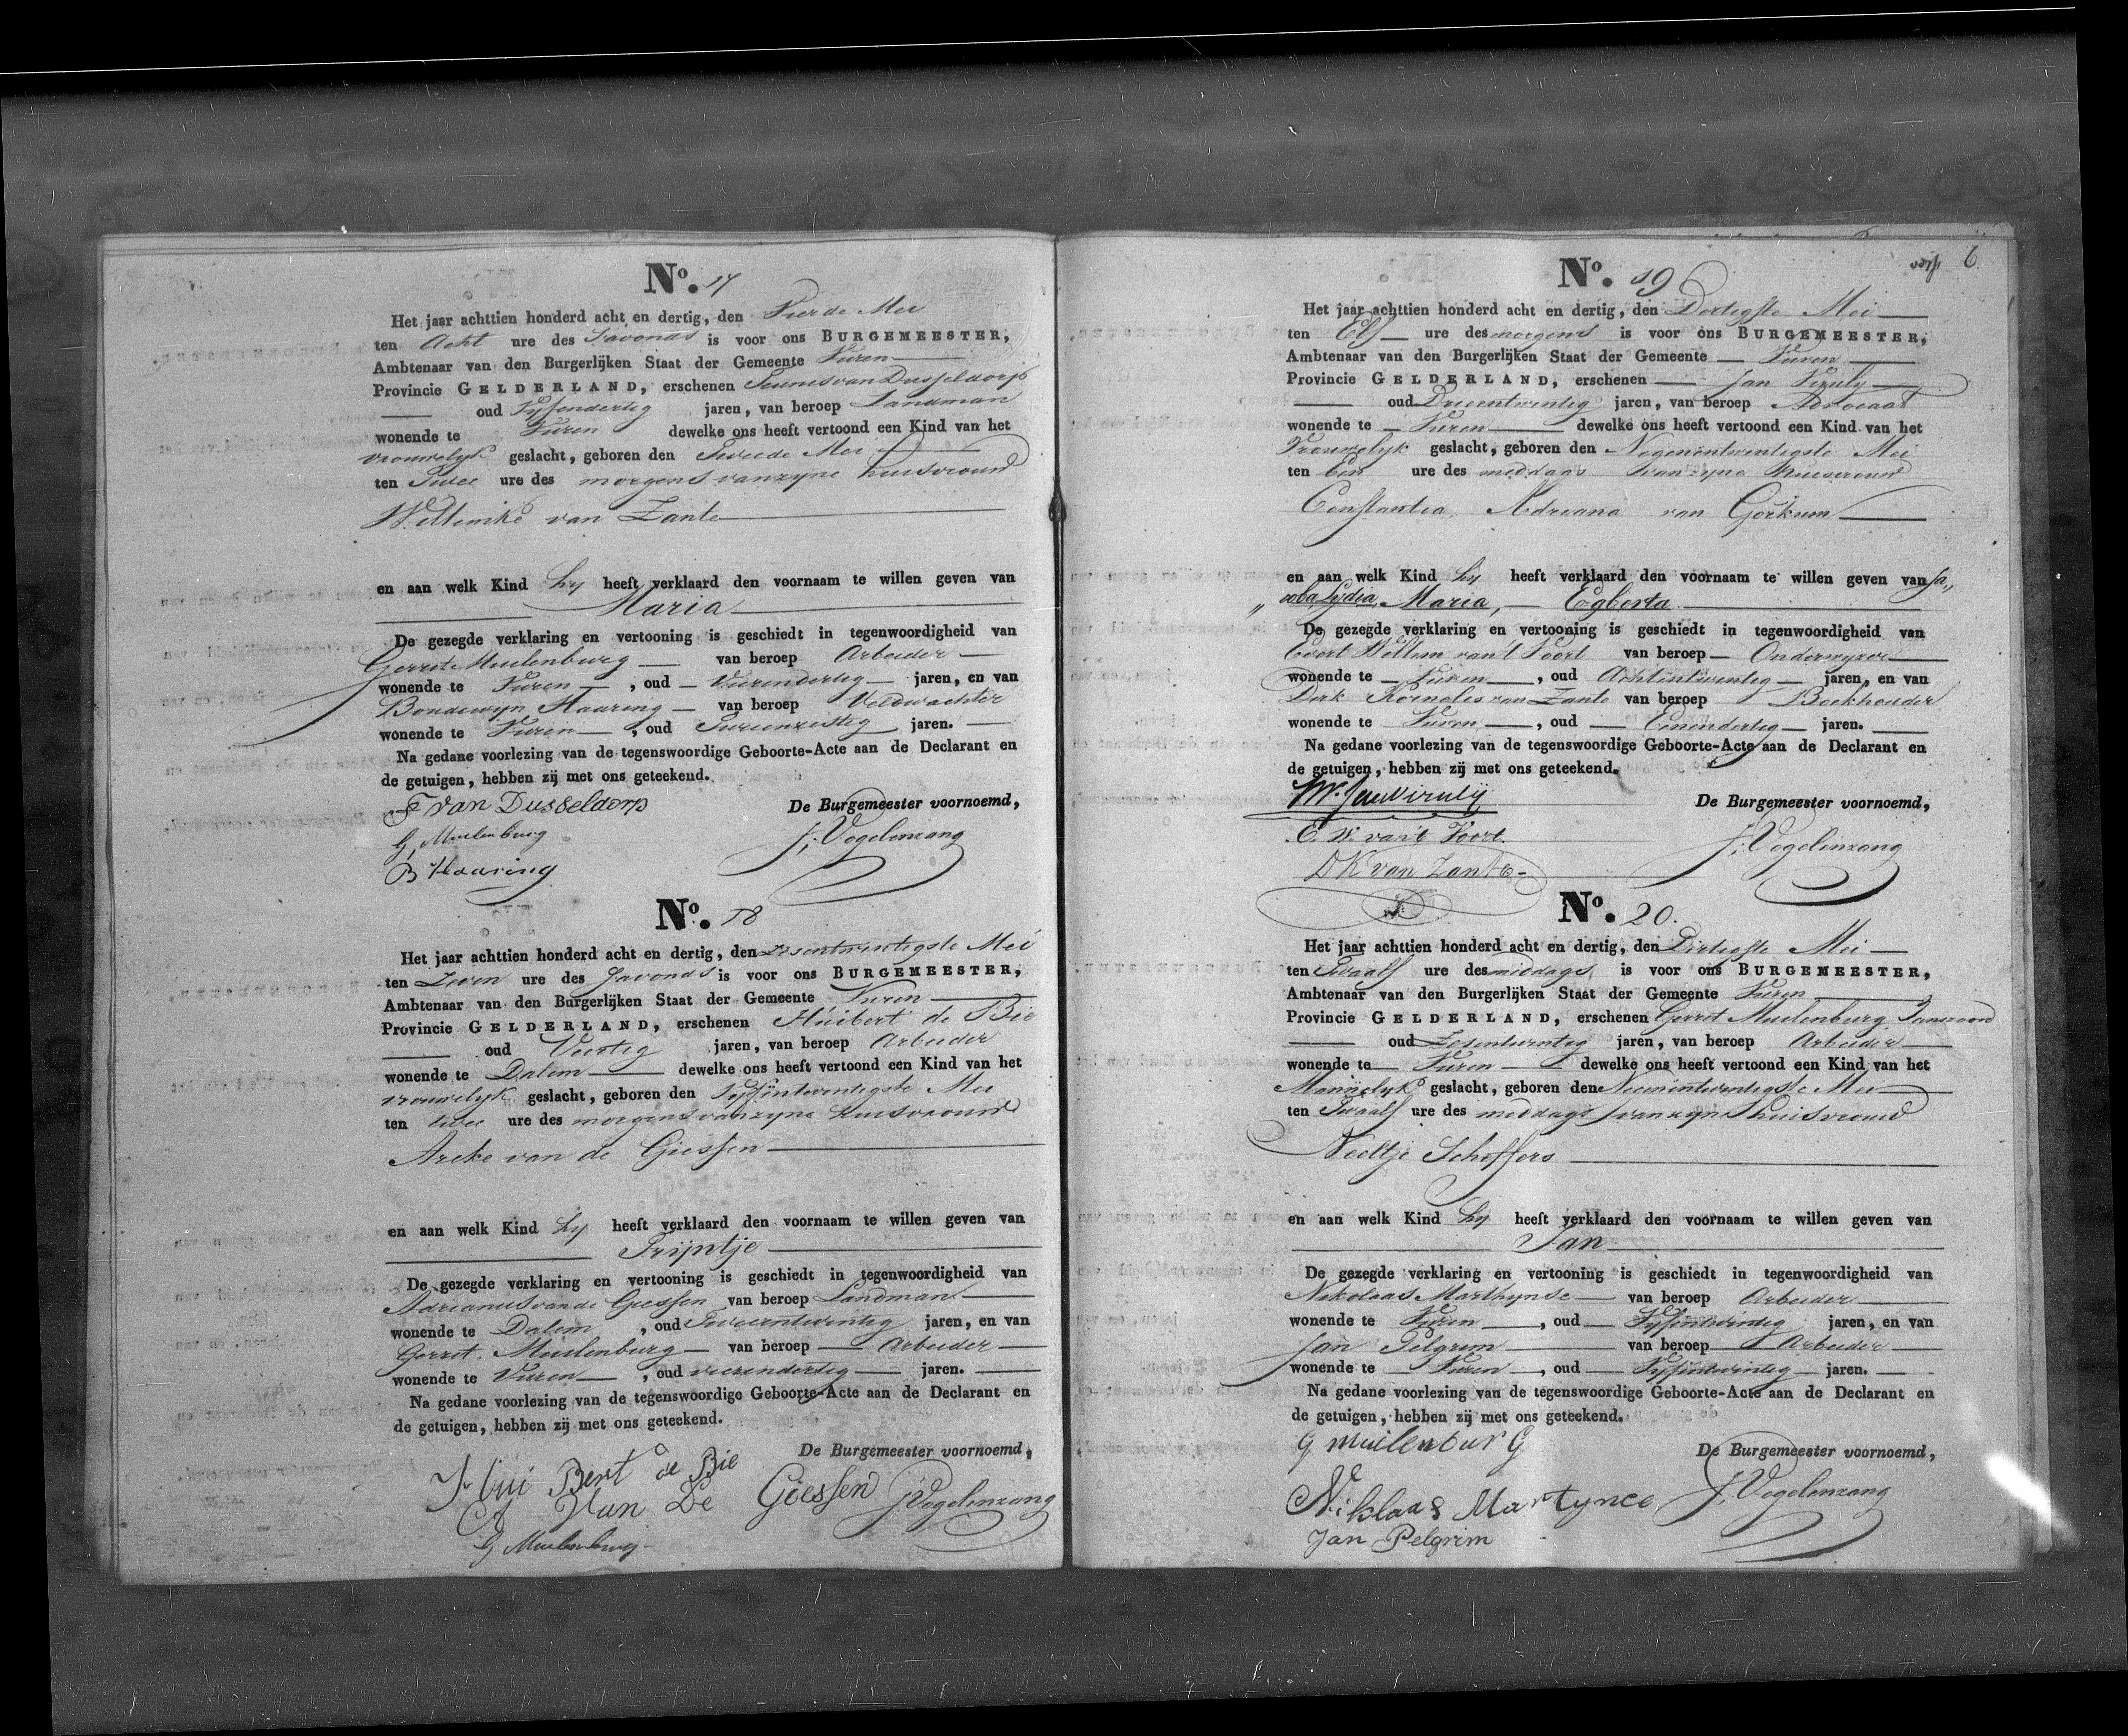 No. 17
Het jaar achttien honderd acht en dertig, den Vierde Mei
ten Acht ure des Savonds is voor ons BURGEMEESTER,
Ambtenaar van den Burgerlijken Staat der Gemeente Vuren
Provincie GELDERLAND, erschenen Teunis van Dusseldorp
oud Vyfendertig jaren, van beroep Landman
wonende te Vuren dewelke ons heeft vertoond een Kind van het
vrouwelyk geslacht, geboren den Tweede Mei
ten Twee ure des morgens van zyne huisvrouw
Willemke van Zante
en aan welk Kind hy heeft verklaard den voornaam te willen geven van
Maria
De gezegde verklaring en vertooning is geschiedt in tegenwoordigheid van
Gerrit Muilenburg van beroep Arbeider
wonende te Vuren, oud Vierendertig jaren, en van
Boudewyn Haaring van beroep Veldwachter
wonende te Vuren, oud Tweeenzestig jaren.
Na gedane voorlezing van de tegenswoordige Geboorte-Acte aan de Declarant en
de getuigen, hebben zij met ons geteekend.
T van Dusseldorp De Burgemeester voornoemd,
G, Muilenburg J; Vogelenzang
B Haaring
No. 18
Het jaar achttien honderd acht en dertig, den Zesentwentigste Mei
ten Zeven ure des Savonds is voor ons BURGEMEESTER,
Ambtenaar van den Burgerlijken Staat der Gemeente Vuren
Provincie GELDERLAND, erschenen Huibert de Bie
oud Veertig jaren, van beroep Arbeider
wonende te Dalem dewelke ons heeft vertoond een Kind van het
vrouwelyk geslacht, geboren den Vyfintwentigste Mei
ten twee ure des morgens van zyne Huisvrouw
Areke van de Giessen
en aan welk Kind hy heeft verklaard den voornaam te willen geven van
Trijntje
De gezegde verklaring en vertooning is geschiedt in tegenwoordigheid van
Adrianus van de Giessen van beroep Landman
wonende te Dalem, oud Tweeentwintig jaren, en van
Gerrit Muilenburg van beroep Arbeider
wonende te Vuren, oud vierendertig jaren.
Na gedane voorlezing van de tegenswoordige Geboorte-Acte aan de Declarant en
de getuigen, hebben zij met ons geteekend.
De Burgemeester voornoemd,
Hui Bert de Bie
A Van De Giessen J; Vogelenzang
G Muilenburg
6
No. 19
Het jaar achttien honderd acht en dertig, den Dertigste Mei
ten Elf ure des morgens is voor ons BURGEMEESTER,
Ambtenaar van den Burgerlijken Staat der Gemeente Vuren
Provincie GELDERLAND, erschenen Jan Viruly
oud Drieentwentig jaren, van beroep Advocaat
wonende te Vuren dewelke ons heeft vertoond een Kind van het
Vrouwelyk geslacht, geboren den Negenentwentigste Mei
ten Een ure des middags van zyne Huisvrouw
Constantia Adriana van Gorkum
en aan welk Kind hy heeft verklaard den voornaam te willen geven van Ja„
„ coba Lydia Maria, Egberta
De gezegde verklaring en vertooning is geschiedt in tegenwoordigheid van
Evert Willem van 't Voort van beroep Onderwyzer
wonende te Vuren, oud Achtentwentig jaren, en van
Dirk Kornelis van Zante van beroep Boekhouder
wonende te Vuren, oud Eenendertig jaren.
Na gedane voorlezing van de tegenswoordige Geboorte-Acte aan de Declarant en
de getuigen, hebben zij met ons geteekend.
Mr. Jan Viruly De Burgemeester voornoemd,
E. W. van 't Voort. J; Vogelenzang
D K van Zante
No. 20.
Het jaar achttien honderd acht en dertig, den Dertigste Mei
ten Twaalf ure des middags is voor ons BURGEMEESTER,
Ambtenaar van den Burgerlijken Staat der Gemeente Vuren
Provincie GELDERLAND, erschenen Gerrit Muilenburg Janszoon
oud Zesentwentig jaren, van beroep Arbeider
wonende te Vuren dewelke ons heeft vertoond een Kind van het
Mannelyk geslacht, geboren den Neeneintwentigste Mei
ten Twaalf ure des middags van zyne huisvrouw
Neeltje Scheffers
en aan welk Kind hy heeft verklaard den voornaam te willen geven van
Jan
De gezegde verklaring en vertooning is geschiedt in tegenwoordigheid van
Nikolaas Marthynse van beroep Arbeider
wonende te Vuren, oud Vyfentwintig jaren, en van
Jan Pelgrim van beroep Arbeider
wonende te Vuren, oud Vyfentwintig jaren.
Na gedane voorlezing van de tegenswoordige Geboorte-Acte aan de Declarant en
de getuigen, hebben zij met ons geteekend.
G muilenburg De Burgemeester voornoemd,
Niklaas Martynce J; Vogelenzang
Jan Pelgrim